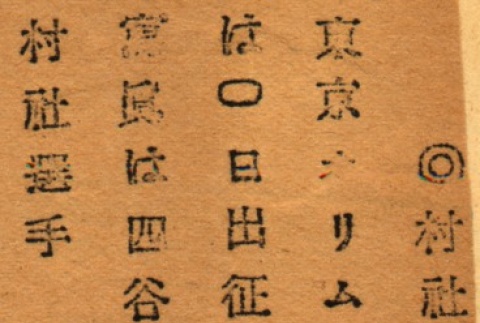 ◎村社
東京オリム
は〇日出征
寫眞は四谷
村社選手